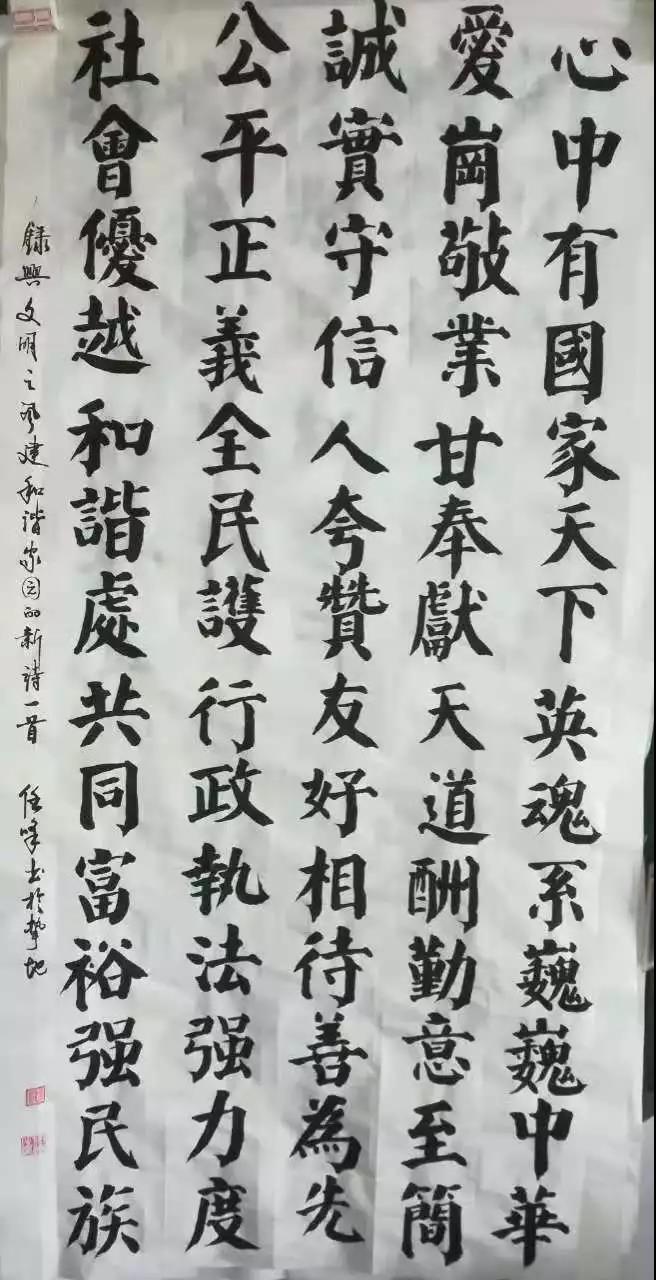 心中有國家天下英魂系巍巍中華
愛崗敬業甘奉獻天道酬勤意至簡
誠實守信人夸贊友好相待善為先
公平正義全民護行政執法强力度
社會優越和諧處共同富裕强民族
錄興文明之風建和谐家园的新詩一首 任峰书於